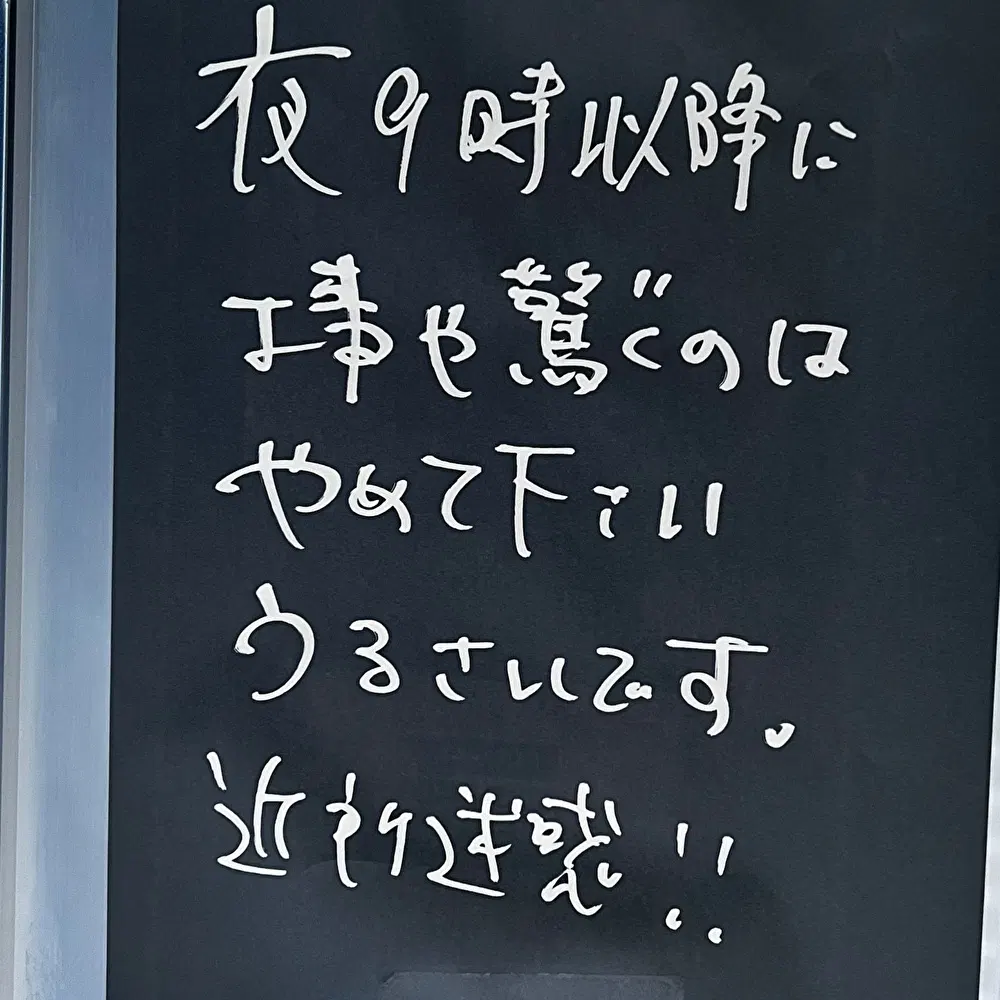 夜9時以降に
工事や驚ぐのは
やめて下さい
うるさいです。
近所迷惑!!